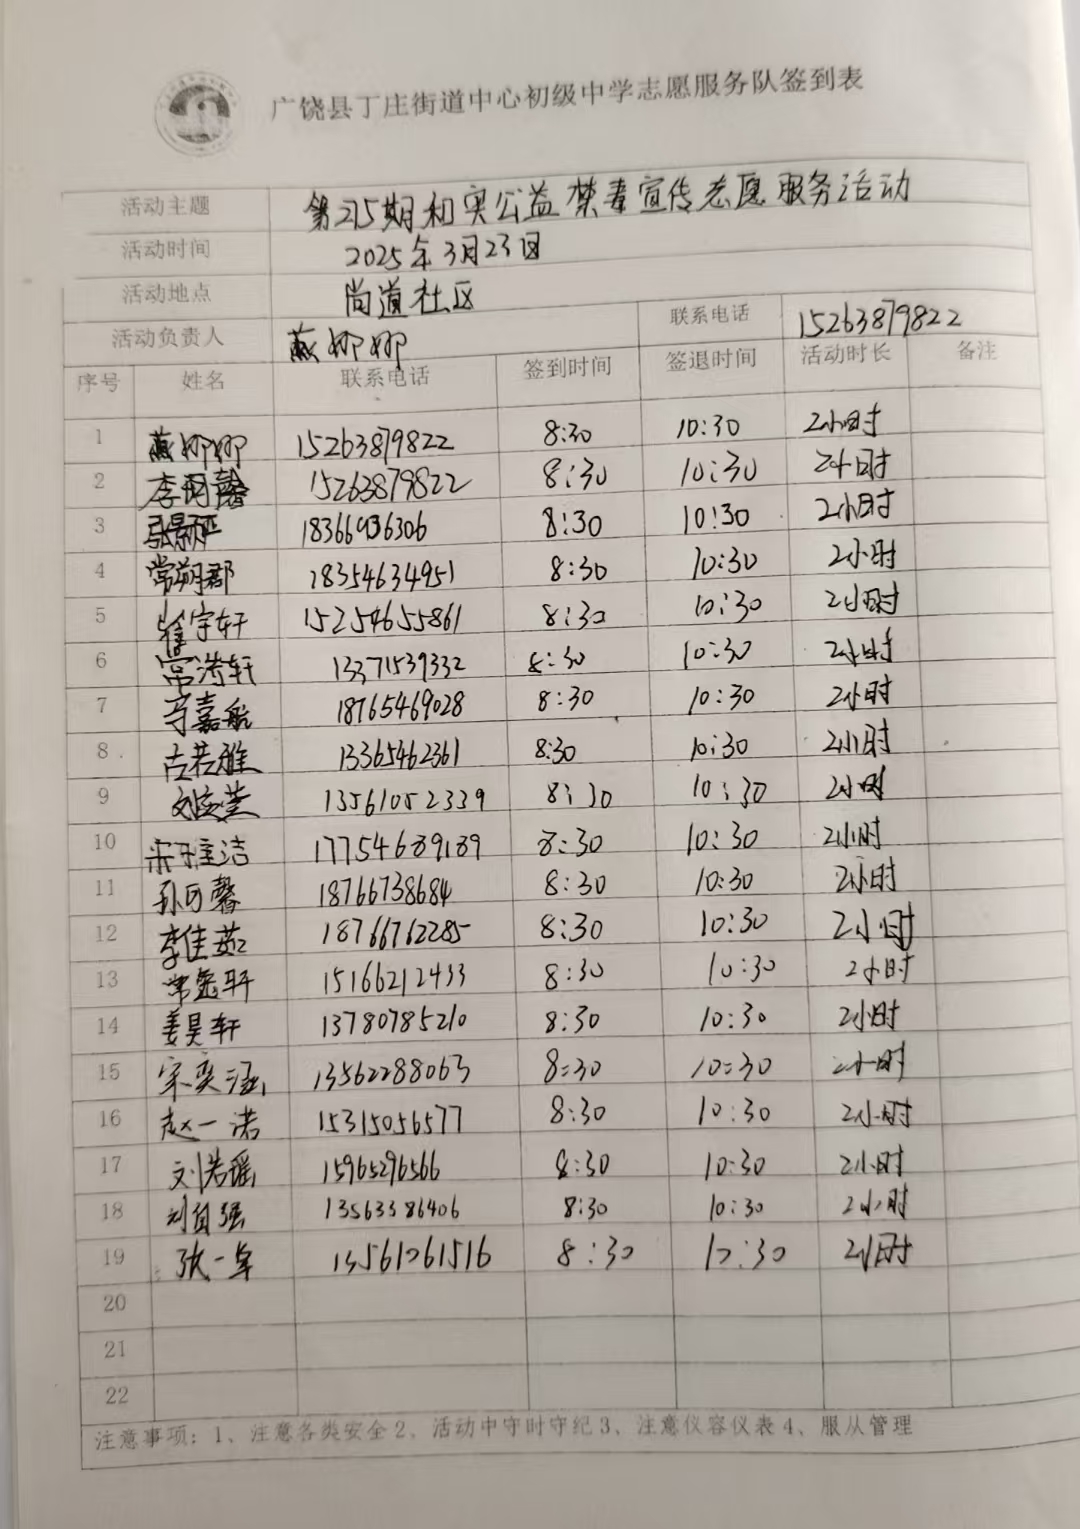 广饶县丁庄街道中心初级中学志愿服务队签到表
活动主题 第215期和实公益禁毒宣传志愿服务活动
活动时间 2025年3月23日
活动地点 尚道社区
活动负责人 燕娜娜 联系电话 15263879822
序号 姓名 联系电话 签到时间 签退时间 活动时长 备注
1 燕娜娜 15263879822 8:30 10:30 2小时
2 李明馨 15263879822 8:30 10:30 2小时
3 18366936306 8:30 10:30 2小时
4 常朔郡 18354634951 8:30 10:30 2小时
5 崔宇轩 15254655861 8:30 10:30 2小时
6 常浩轩 13371539332 8:30 10:30 2小时
7 嘉航 18765469028 8:30 10:30 2小时
8 古若雅 13365462361 8:30 10:30 2小时
9 13561052339 8:30 10:30 2小时
10 宋雅洁 17754689189 8:30 10:30 2小时
11 馨 18766738684 8:30 10:30 2小时
12 李佳茹 18766762285 8:30 10:30 2小时
13 15166212433 8:30 10:30 2小时
14 姜昊轩 13780785210 8:30 10:30 2小时
15 宋奕涵 13562288063 8:30 10:30 2小时
16 赵一诺 15315056577 8:30 10:30 2小时
17 刘浩瑶 15965296566 8:30 10:30 2小时
18 刘自强 13563386406 8:30 10:30 2小时
19 张一卓 13561261516 8:30 10:30 2小时
20
21
22
注意事项：1、注意各类安全2、活动中守时守纪3、注意仪容仪表4、服从管理